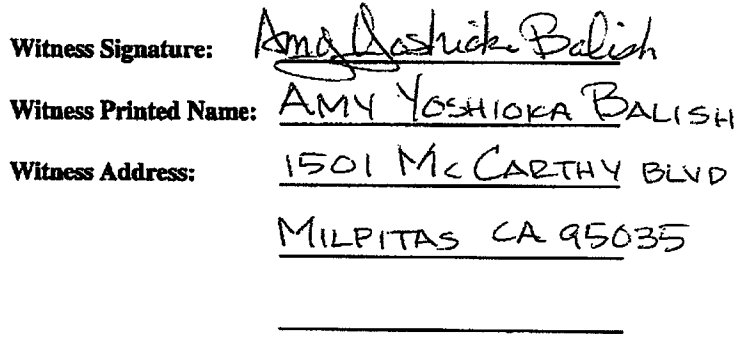 Witness Signature: Amy Yoshioka Balish
Witness Printed Name: AMY YOSHIOKA BALISH
Witness Address: 1501 McCARTHY BLVD
MILPITAS CA 95035